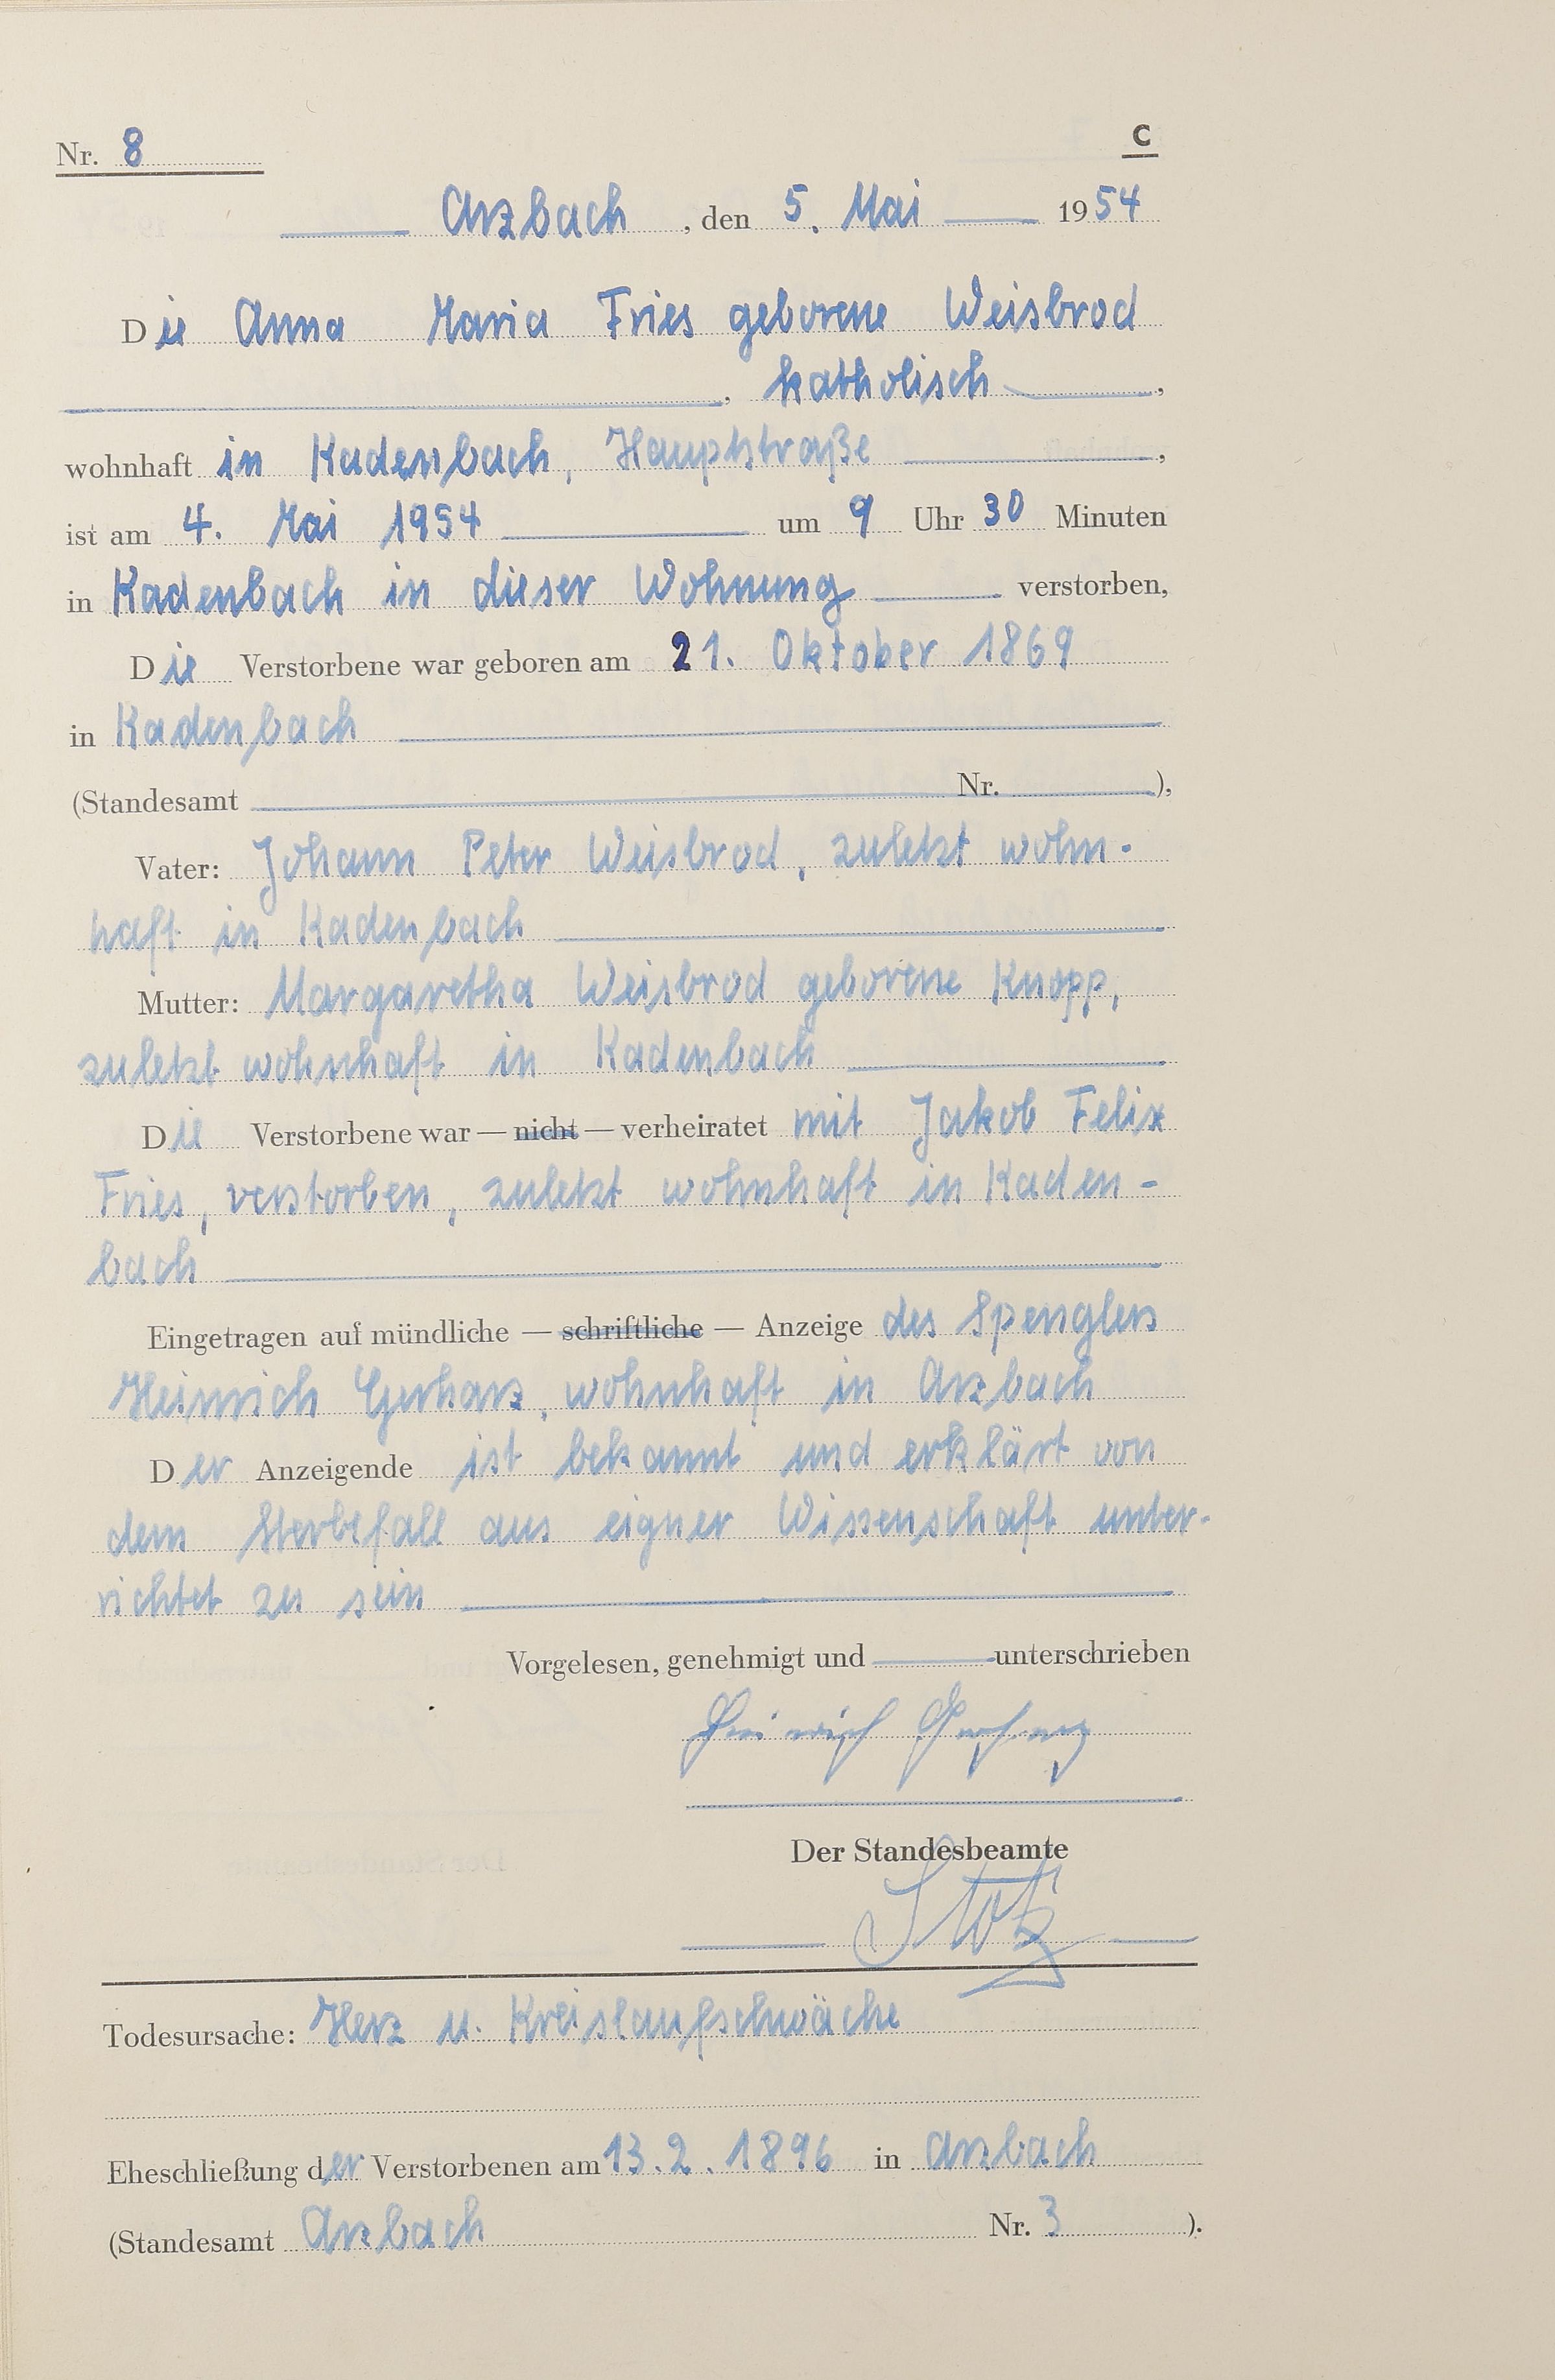 Nr. 8
C
Arzbach, den 5. Mai 1954
Die Anna Maria Fries geborene Weisbrod
, katholisch ,
wohnhaft in Kadenbach, Hauptstraße ,
ist am 4. Mai 1954 um 9 Uhr 30 Minuten
in Kadenbach in dieser Wohnung verstorben,
Die Verstorbene war geboren am 21. Oktober 1869
in Kadenbach
(Standesamt Nr. ),
Vater: Johann Peter Weisbrod, zuletzt wohn-
haft in Kadenbach
Mutter: Margaretha Weisbrod geborene Knopp,
zuletzt wohnhaft in Kadenbach
Die Verstorbene war — nicht — verheiratet mit Jakob Felix
Fries, verstorben, zuletzt wohnhaft in Kaden-
bach
Eingetragen auf mündliche — schriftliche — Anzeige des Spenglers
Heinrich Gerharz, wohnhaft in Arzbach
Der Anzeigende ist bekannt und erklärt von
dem Sterbefall aus eigner Wissenschaft unter-
richtet zu sein
Vorgelesen, genehmigt und unterschrieben
Heinrich Gerharz
Der Standesbeamte
Stotz
Todesursache: Herz u. Kreislaufschwäche
Eheschließung der Verstorbenen am 13.2.1896 in Arzbach
(Standesamt Arzbach Nr. 3 ).